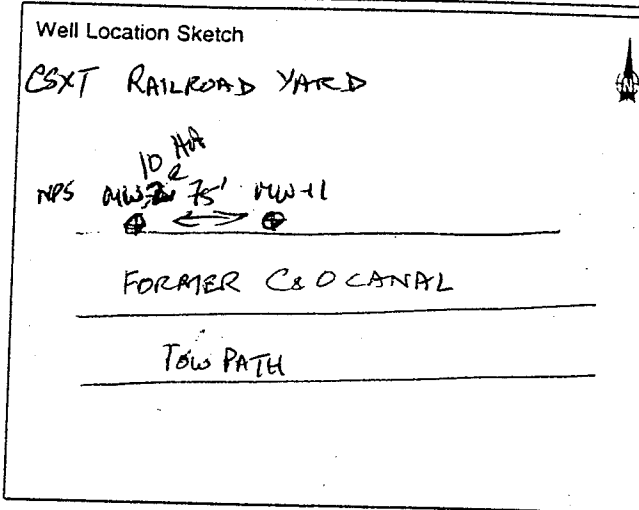 Well Location Sketch
N
CSXT RAILROAD YARD
10
NPS MW- 75' MW-11
FORMER C&O CANAL
TOW PATH